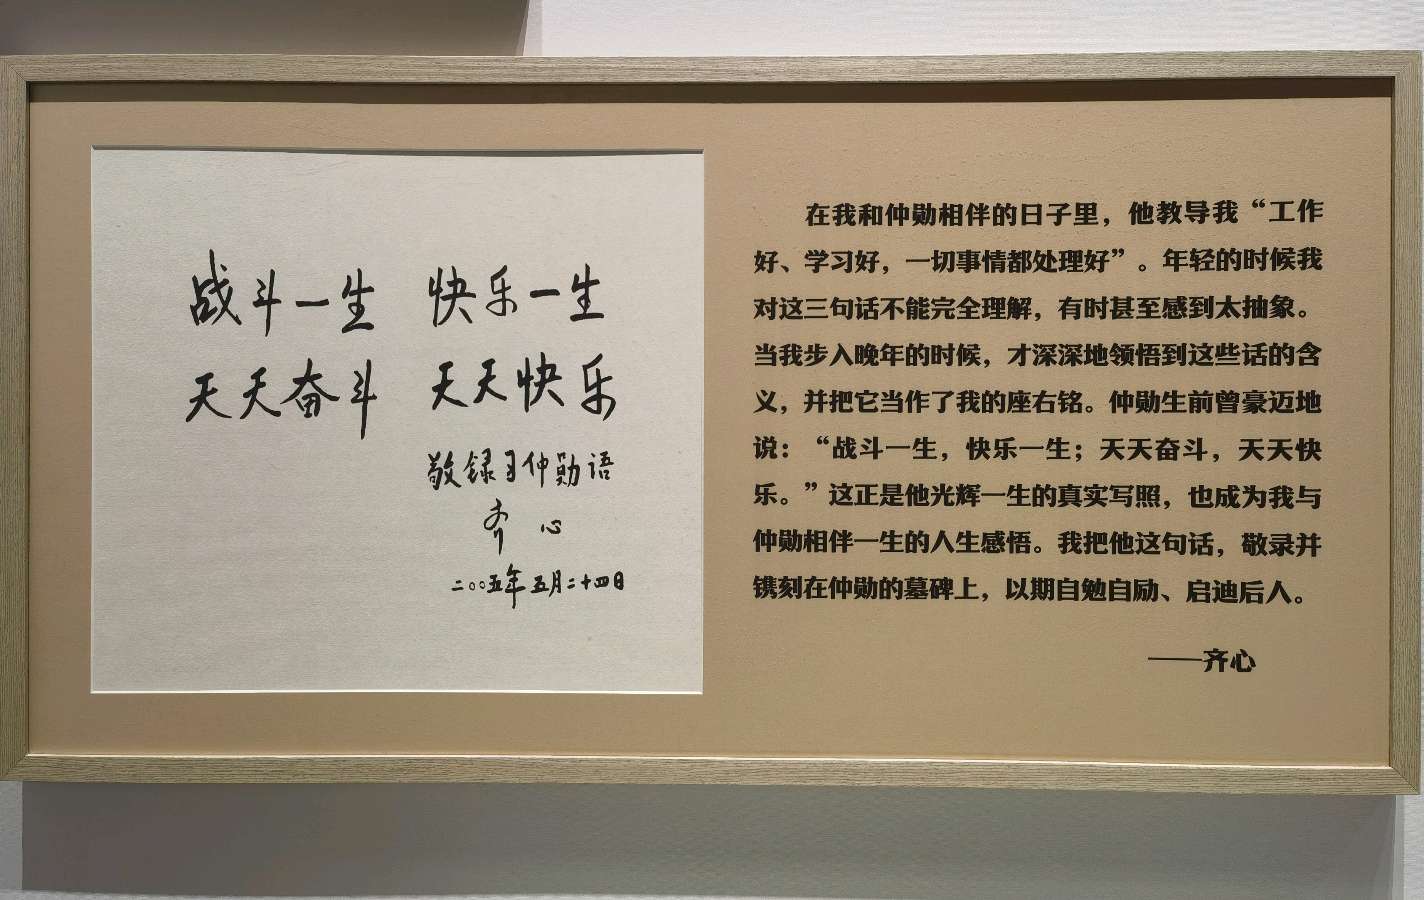 战斗一生 快乐一生
天天奋斗 天天快乐
敬录习仲勋语
齐心
二〇〇五年五月二十四日
在我和仲勋相伴的日子里，他教导我“工作
好、学习好，一切事情都处理好”。年轻的时候我
对这三句话不能完全理解，有时甚至感到太抽象。
当我步入晚年的时候，才深深地领悟到这些话的含
义，并把它当作了我的座右铭。仲勋生前曾豪迈地
说：“战斗一生，快乐一生；天天奋斗，天天快
乐。”这正是他光辉一生的真实写照，也成为我与
仲勋相伴一生的人生感悟。我把他这句话，敬录并
镌刻在仲勋的墓碑上，以期自勉自励、启迪后人。
——齐心